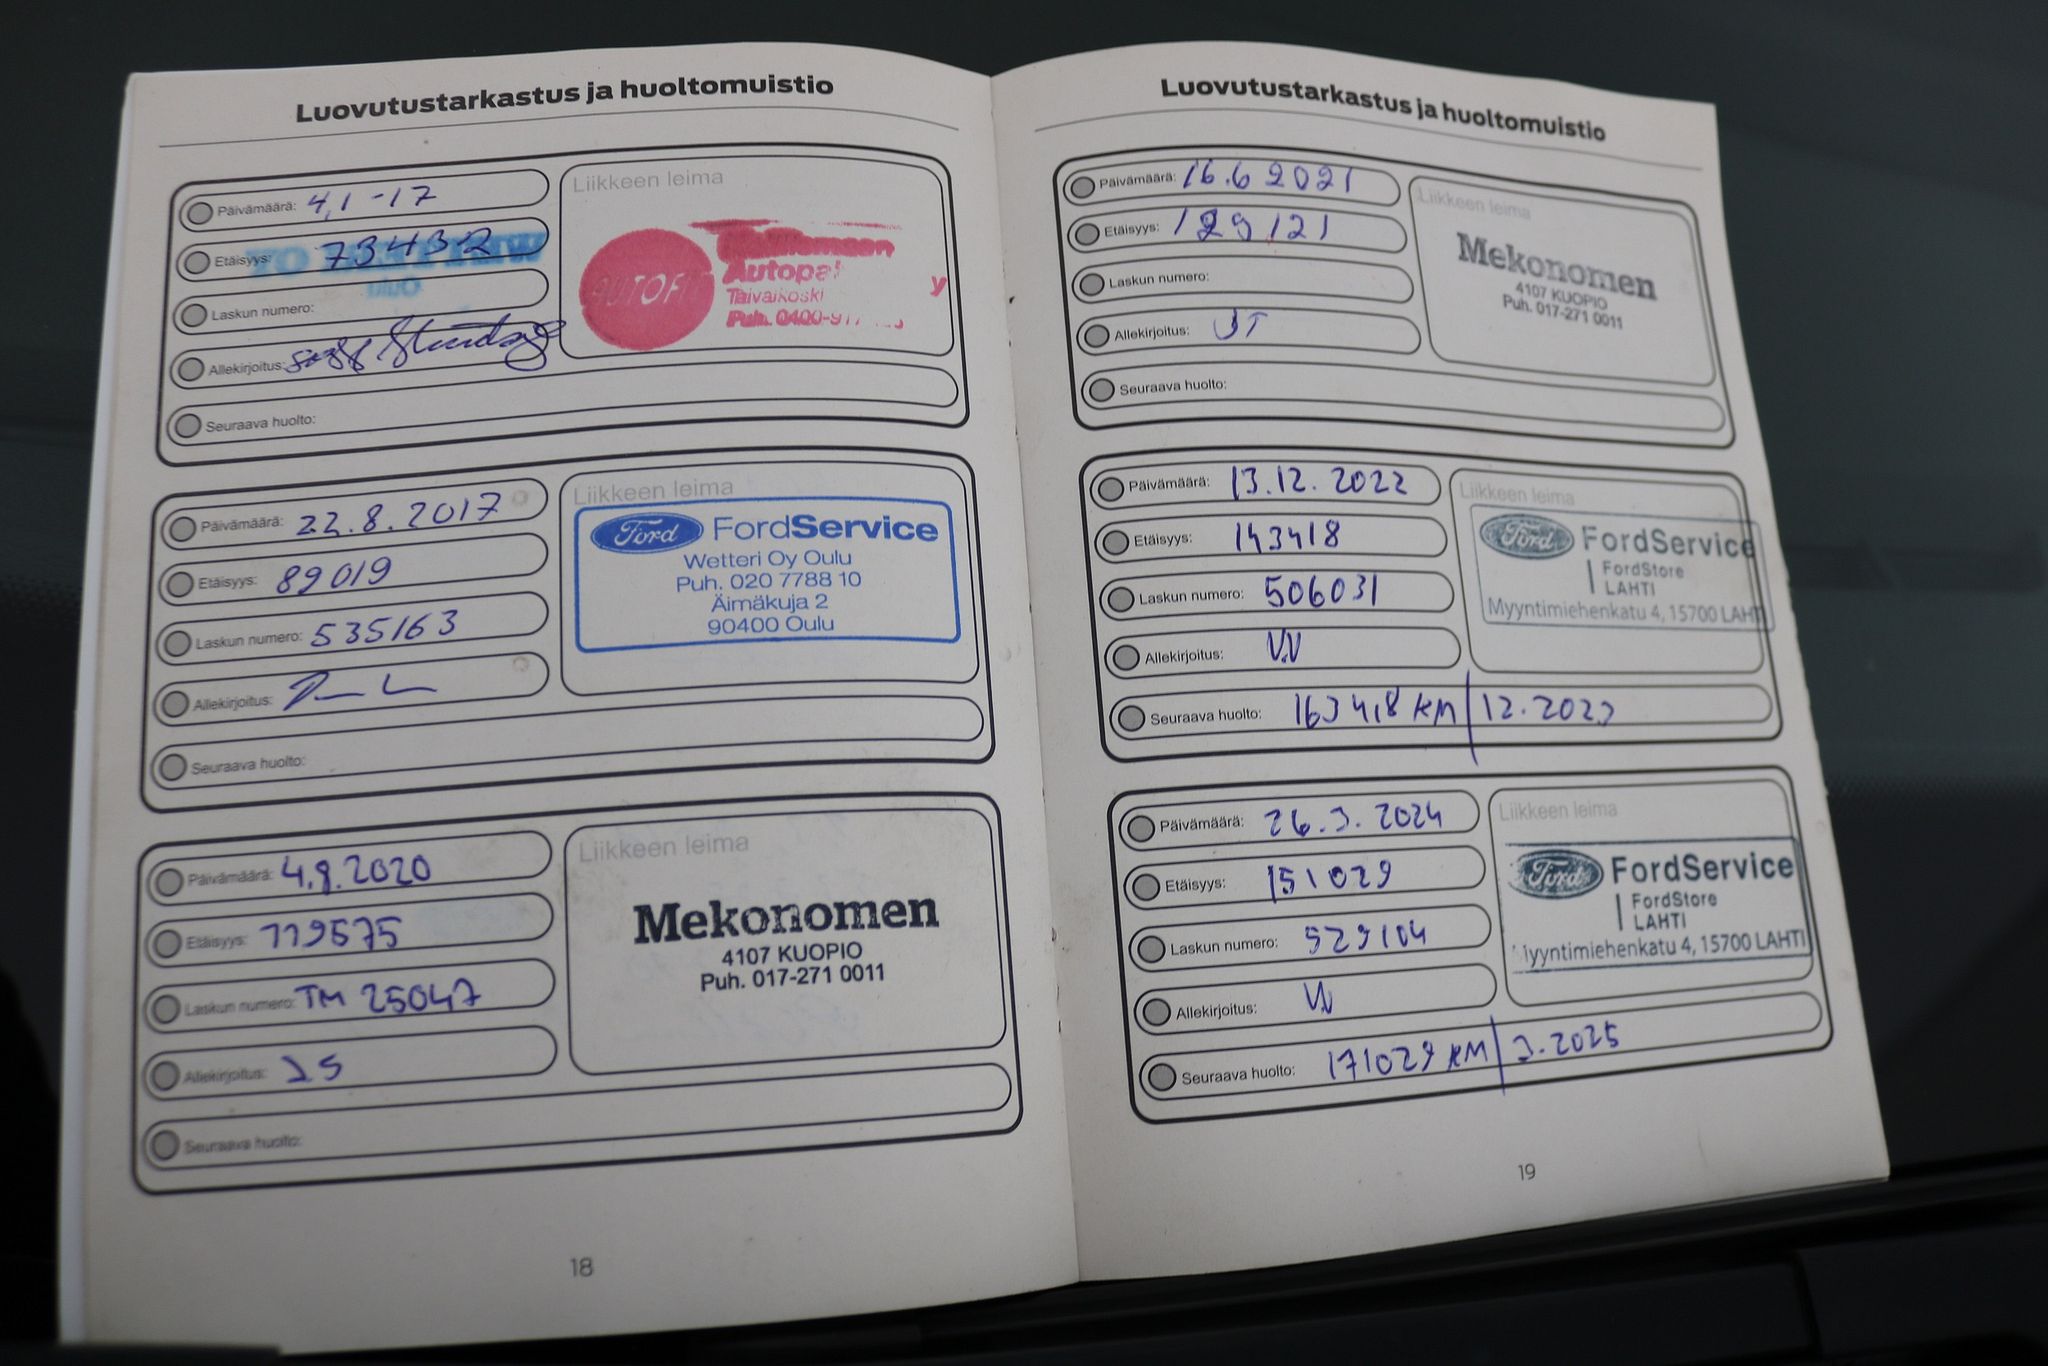 Luovutustarkastus ja huoltomuistio
Päivämäärä: 4,1 -17
Etäisyys: 73432
Laskun numero:
Allekirjoitus:
Seuraava huolto:
Liikkeen leima
AUTOFIT
Autopa
Taivalkoski
Puh. 0400-917
y
Päivämäärä: 22.8.2017
Etäisyys: 89019
Laskun numero: 535163
Allekirjoitus:
Seuraava huolto:
Liikkeen leima
Ford FordService
Wetteri Oy Oulu
Puh. 020 7788 10
Äimäkuja 2
90400 Oulu
Päivämäärä: 4.8.2020
Etäisyys: 119575
Laskun numero: TM 25047
Allekirjoitus: JS
Seuraava huolto:
Liikkeen leima
Mekonomen
4107 KUOPIO
Puh. 017-271 0011
18
Luovutustarkastus ja huoltomuistio
Päivämäärä: 16.6 2021
Etäisyys: 129121
Laskun numero:
Allekirjoitus: JT
Seuraava huolto:
Liikkeen leima
Mekonomen
4107 KUOPIO
Puh. 017-271 0011
Päivämäärä: 13.12.2022
Etäisyys: 143418
Laskun numero: 506031
Allekirjoitus: V.V
Seuraava huolto: 163418 KM / 12.2023
Liikkeen leima
Ford FordService
FordStore
LAHTI
Myyntimiehenkatu 4, 15700 LAHTI
Päivämäärä: 26.3.2024
Etäisyys: 151029
Laskun numero: 529104
Allekirjoitus: V.V
Seuraava huolto: 171029 KM / 3.2025
Liikkeen leima
Ford FordService
FordStore
LAHTI
iyyntimiehenkatu 4, 15700 LAHTI
19